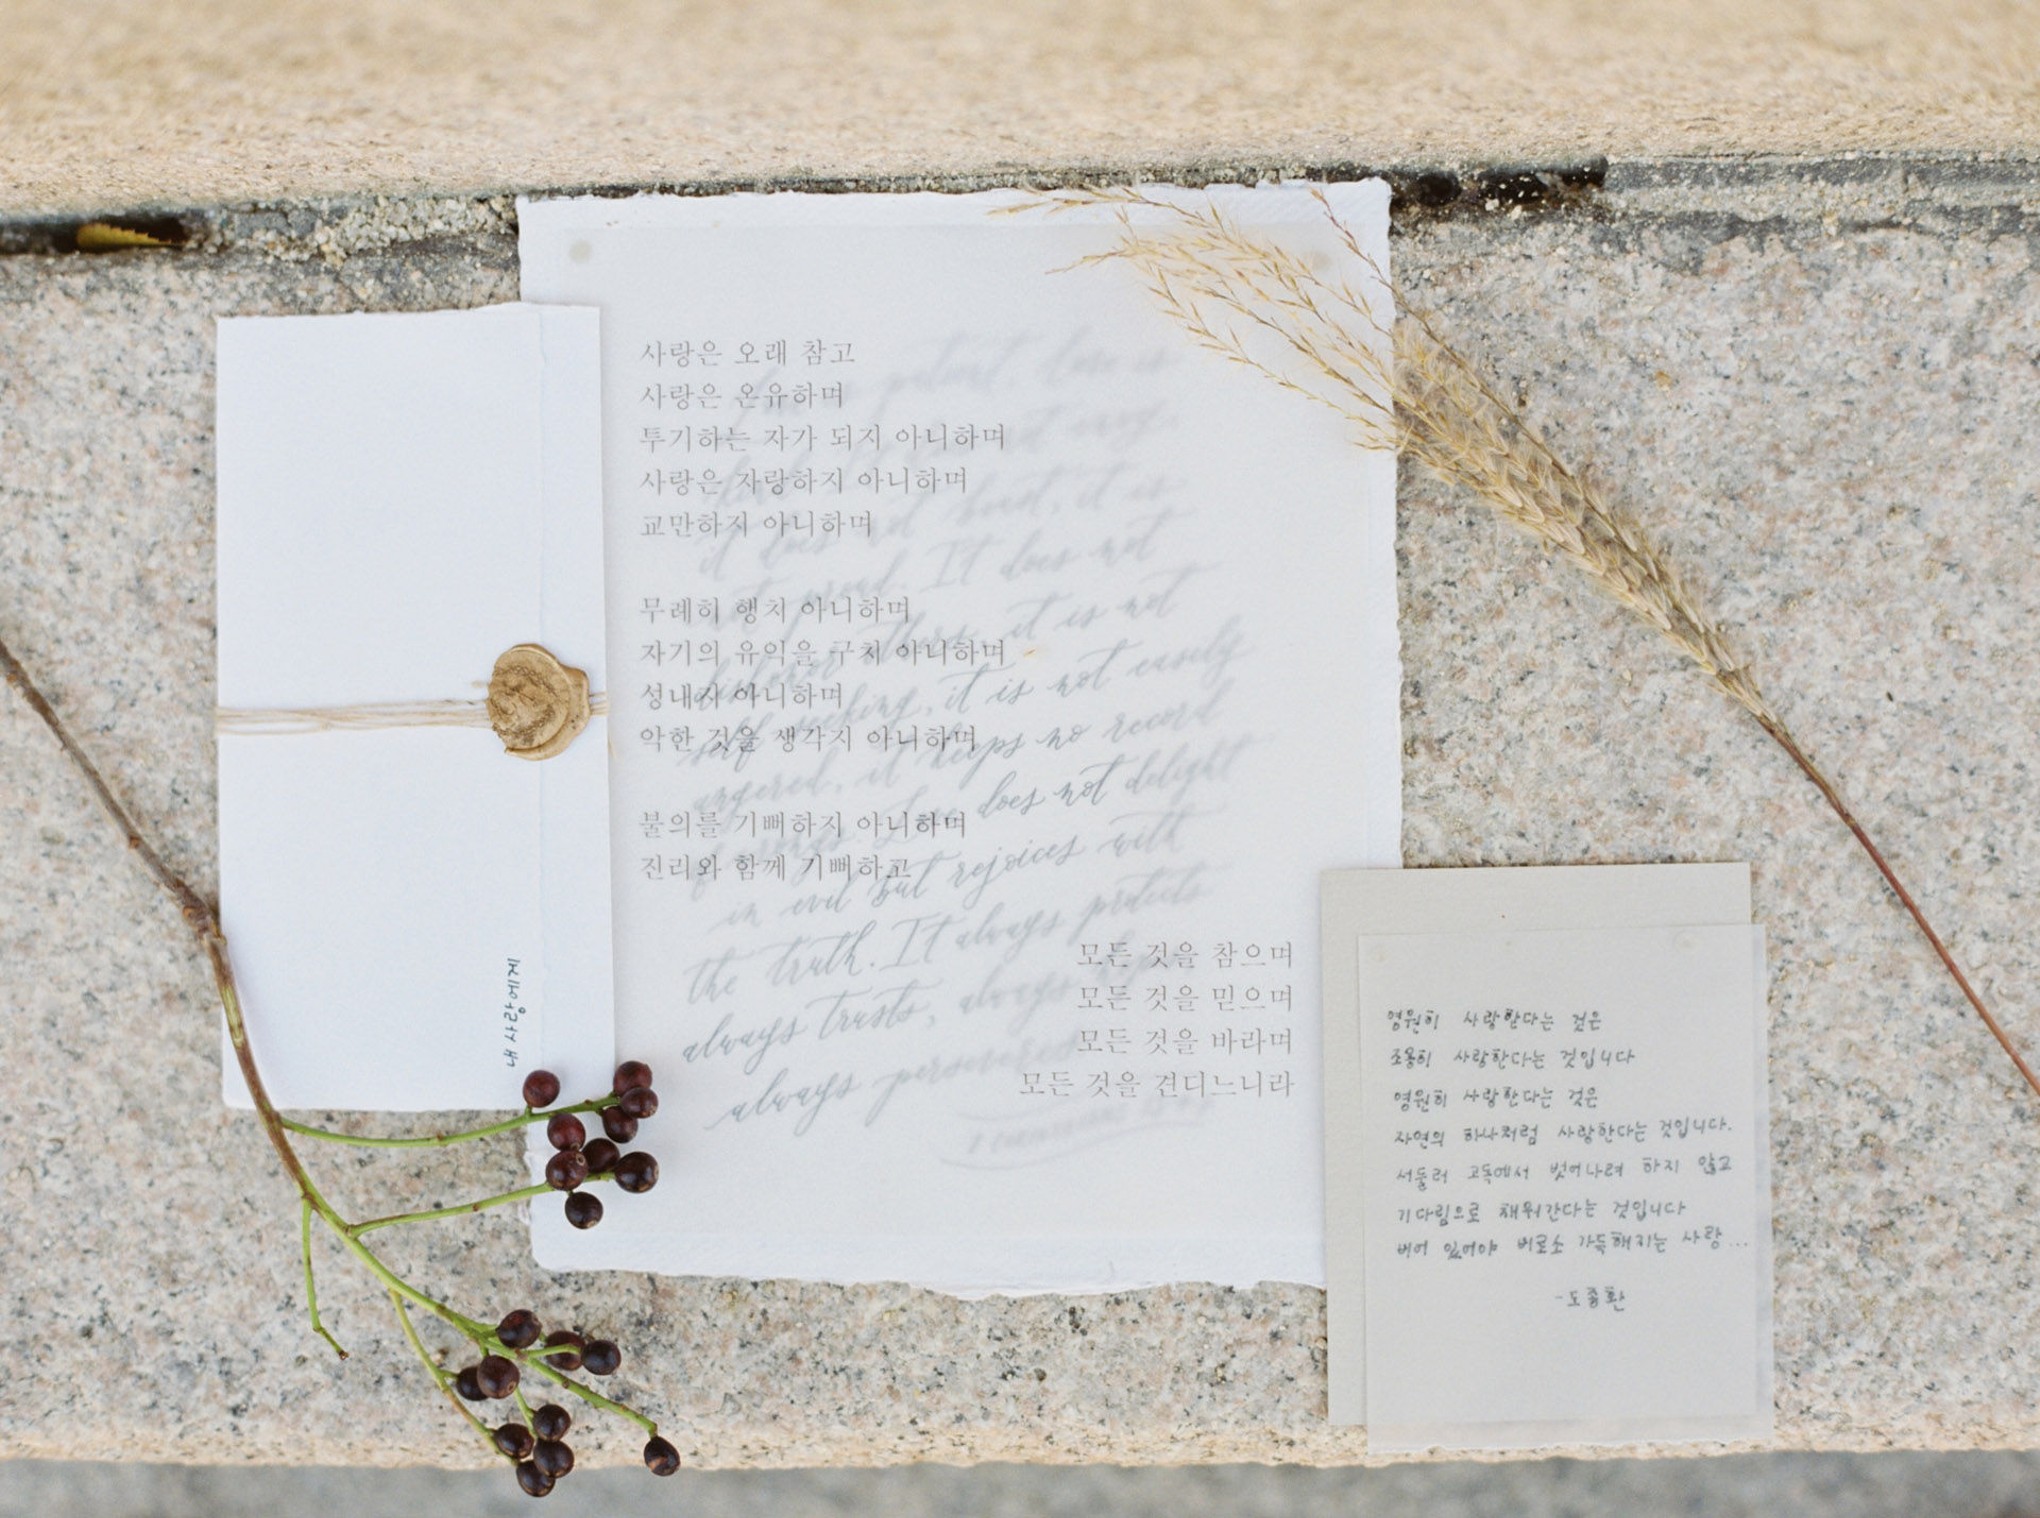 내 사랑에게
사랑은 오래 참고
사랑은 온유하며
투기하는 자가 되지 아니하며
사랑은 자랑하지 아니하며
교만하지 아니하며
무례히 행치 아니하며
자기의 유익을 구치 아니하며
성내지 아니하며
악한 것을 생각지 아니하며
불의를 기뻐하지 아니하며
진리와 함께 기뻐하고
모든 것을 참으며
모든 것을 믿으며
모든 것을 바라며
모든 것을 견디느니라
patient, love is
envy,
it does not boast, it is
not proud. It does not
dishonor others, it is not
self seeking, it is not easily
angered, it keeps no record
of wrongs. Love does not delight
in evil but rejoices with
the truth. It always protects
always trusts, always
always perseveres
영원히 사랑한다는 것은
조용히 사랑한다는 것입니다
영원히 사랑한다는 것은
자연의 하나처럼 사랑한다는 것입니다.
서둘러 고독에서 벗어나려 하지 않고
기다림으로 채워간다는 것입니다
비어 있어야 비로소 가득해지는 사랑...
-도종환